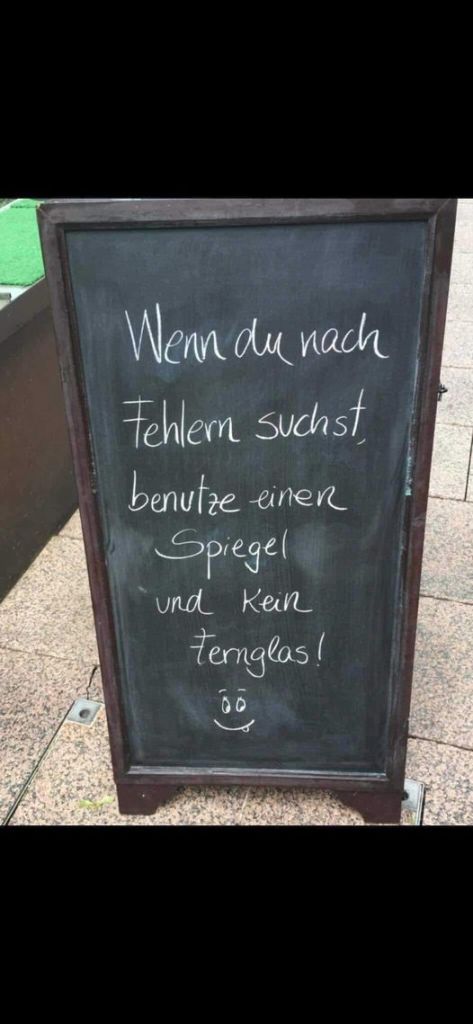 Wenn du nach
Fehlern suchst,
benutze einen
Spiegel
und kein
Fernglas!